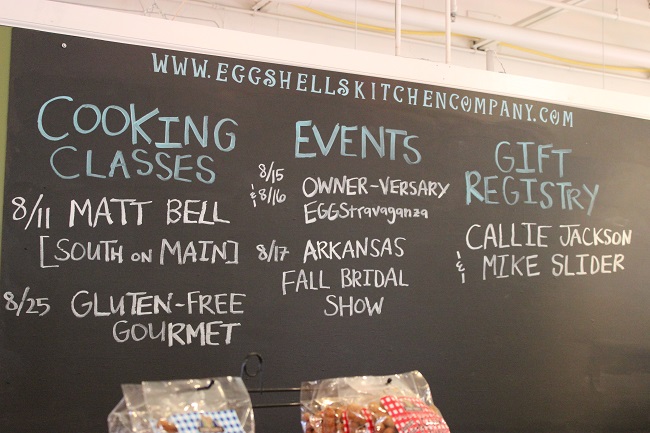 WWW.EGGSHELLSKITCHENCOMPANY.COM
COOKING
CLASSES
8/11 MATT BELL
[SOUTH ON MAIN]
8/25 GLUTEN-FREE
GOURMET
EVENTS
8/15
& 8/16 OWNER-VERSARY
EGGStravaganza
8/17 ARKANSAS
FALL BRIDAL
SHOW
GIFT
REGISTRY
CALLIE JACKSON
& MIKE SLIDER